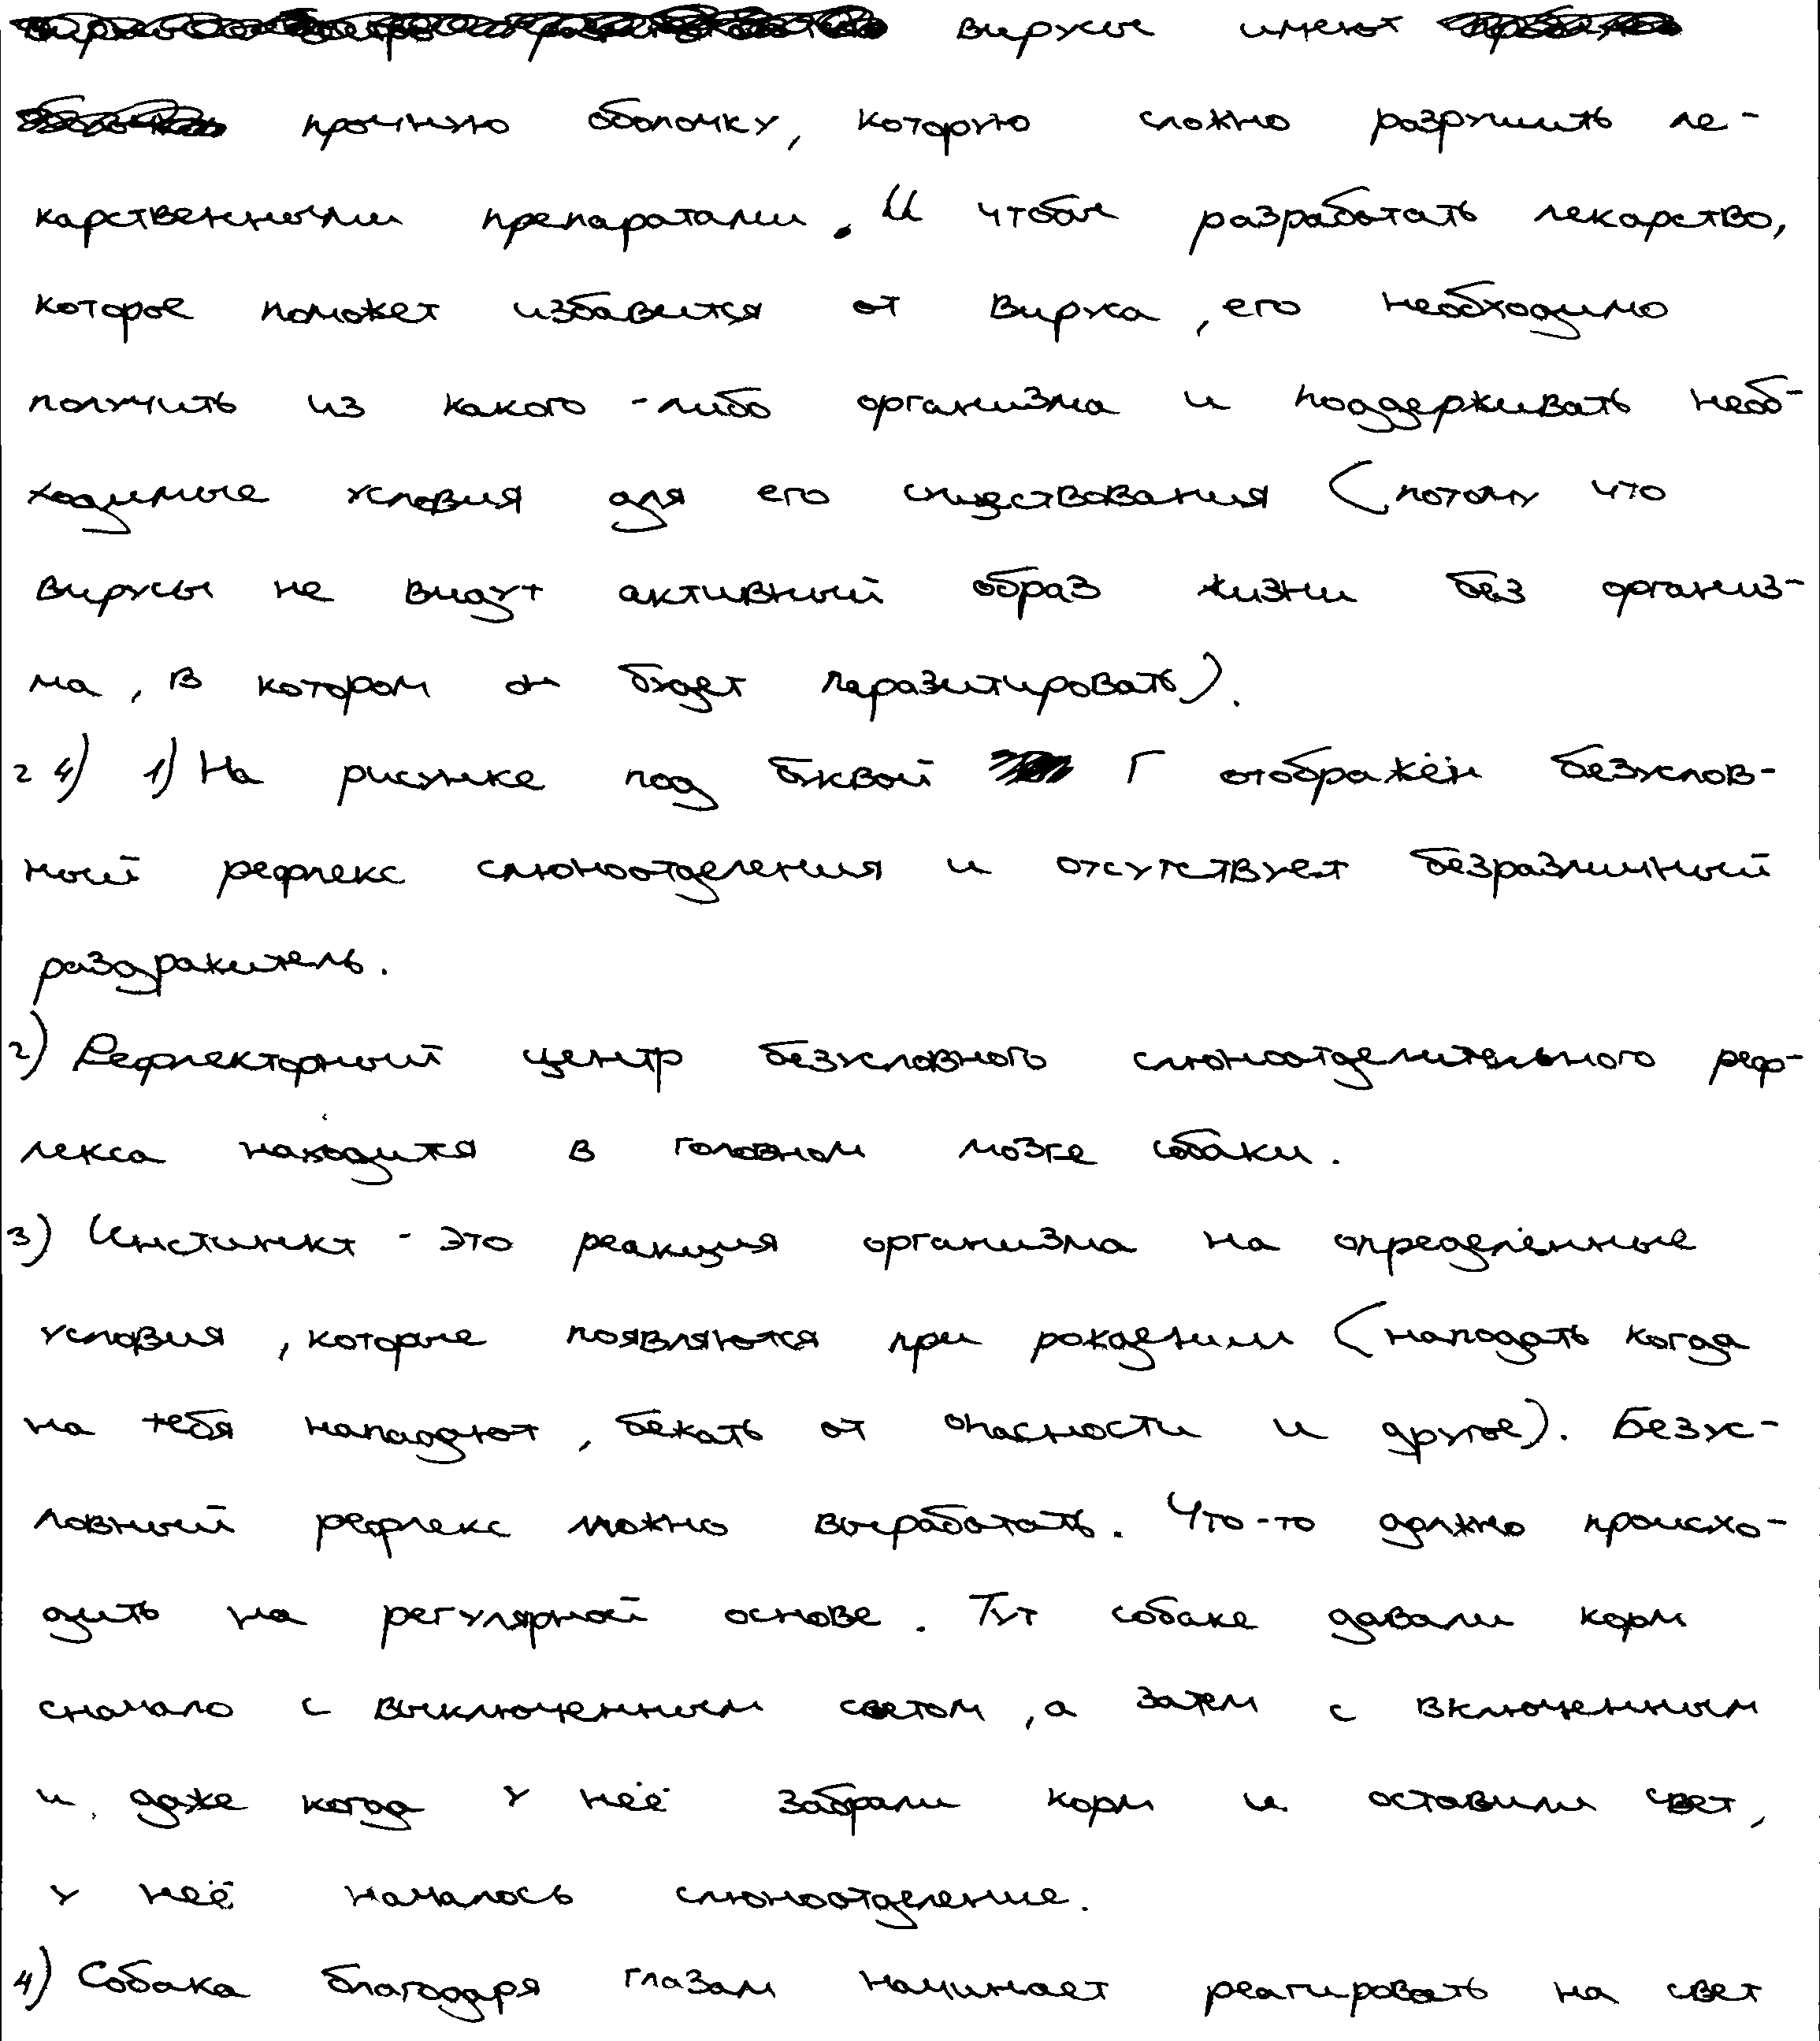 вирусы имеют
прочную оболочку, которую сложно разрушить ле-
карственными препаратами. И чтобы разработать лекарство,
которое поможет избавится от вируса, его необходимо
получить из какого-либо организма и поддерживать необ-
ходимые условия для его существования (потому что
вирусы не видут активный образ жизни без организ-
ма, в котором он будет паразитировать).
24) 1) На рисунке под буквой Г отображён безуслов-
ный рефлекс слюноотделения и отсутствует безразличный
раздражитель.
2) Рефлекторный центр безусловного слюноотделительного реф-
лекса находится в головном мозге собаки.
3) Инстинкт - это реакция организма на определённые
условия, которые появляются при рождении (нападать когда
на тебя нападают, бежать от опасности и другое). Безус-
ловный рефлекс можно выработать. Что-то должно происхо-
дить на регулярной основе. Тут собаке давали корм
сначало с выключенным светом, а затем с включенным
и даже когда у неё забрали корм и оставили свет,
у неё началось слюноотделение.
4) Собака благодаря глазам начинает реагировать на свет